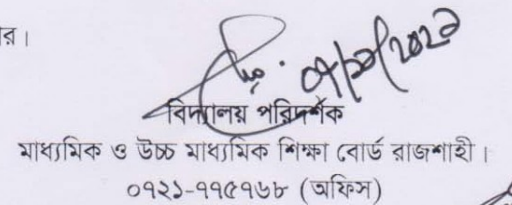 র।
বিদ্যালয় পরিদর্শক
মাধ্যমিক ও উচ্চ মাধ্যমিক শিক্ষা বোর্ড রাজশাহী।
০৭২১-৭৭৫৭৬৮ (অফিস)